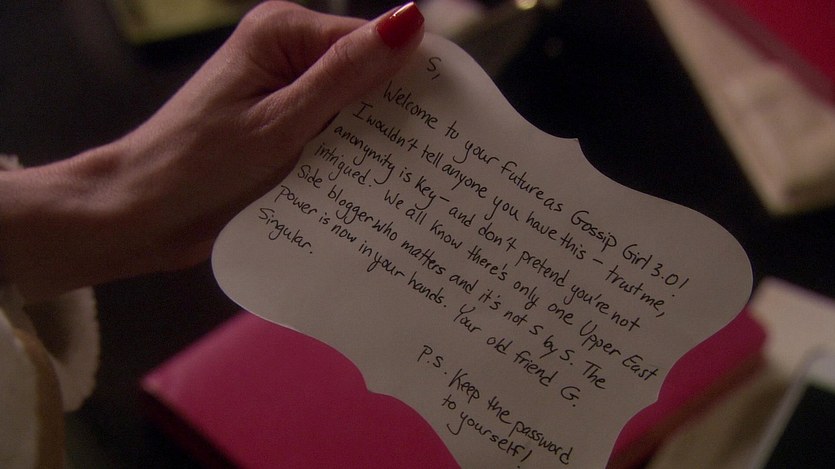 S,
Welcome to your future as Gossip Girl 3.0!
I wouldn't tell anyone you have this – trust me,
anonymity is key – and don't pretend you're not
intrigued. We all know there's only one Upper East
Side blogger who matters and it's not S by S. The
power is now in your hands. Your old friend G.
Singular.
P.S. Keep the password
to yourself!